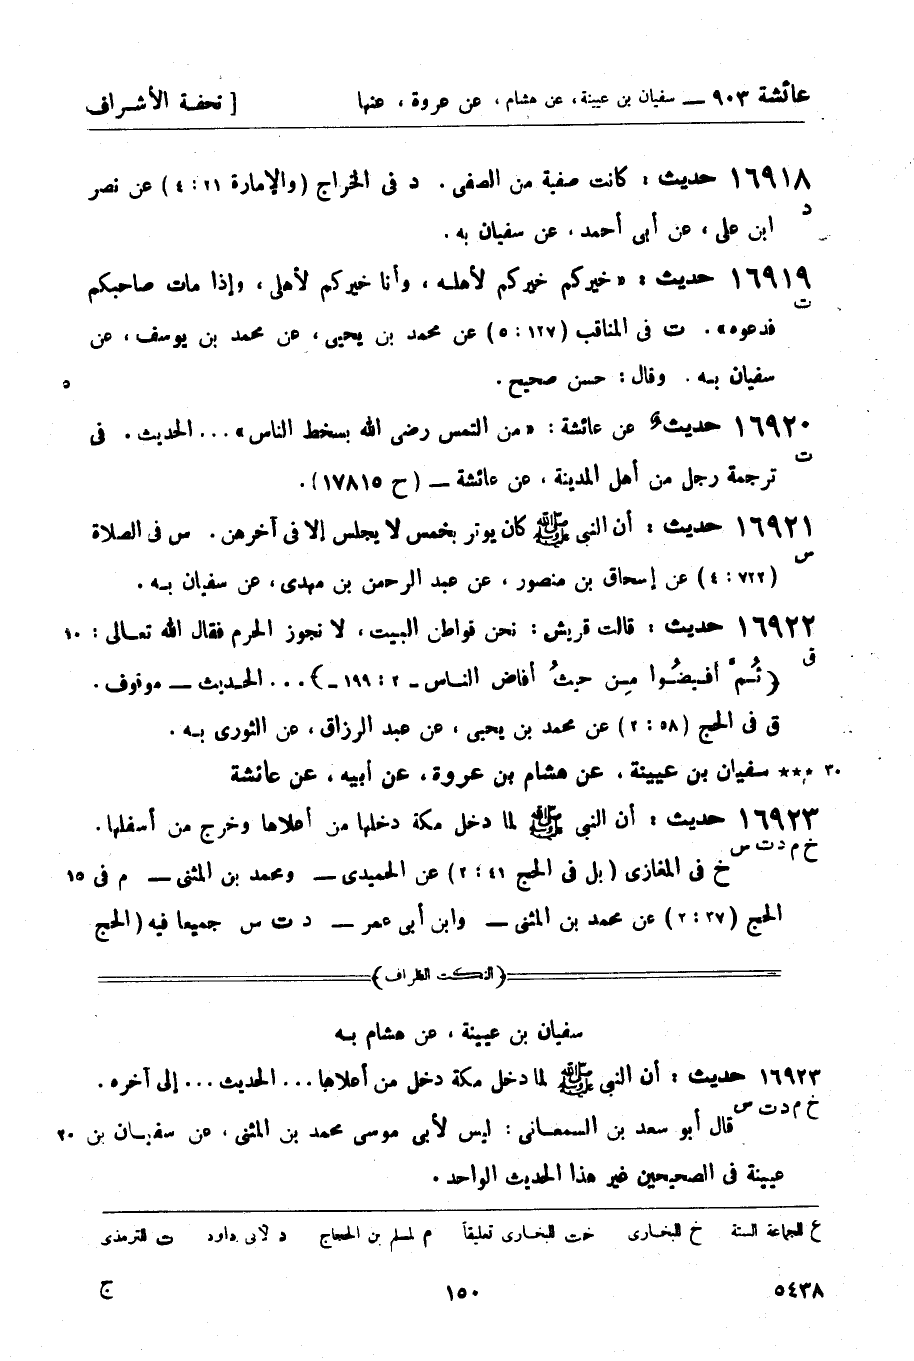 عائشة ٩٠٣ — سفيان بن عيينة، عن هشام، عن عروة، عنها [ تحفة الأشراف
١٦٩١٨ حديث : كانت صفية من الصفى. د فى الخراج (والإمارة ٢١ : ٤) عن نصر
د
ابن على، عن أبى أحمد، عن سفيان به.
١٦٩١٩ حديث : «خيركم خيركم لأهله، وأنا خيركم لأهلى، وإذا مات صاحبكم
ت
فدعوه». ت فى المناقب (١٢٧ : ٥) عن محمد بن يحيى، عن محمد بن يوسف، عن
سفيان به. وقال : حسن صحيح. ٥
١٦٩٢٠ حديث عن عائشة : «من التمس رضى الله بسخط الناس»... الحديث. فى
ت
ترجمة رجل من أهل المدينة، عن عائشة — (ح ١٧٨١٥).
١٦٩٢١ حديث : أن النبى ﷺ كان يوتر بخمس لا يجلس إلا فى آخرهن. س فى الصلاة
س
(٧٢٢ : ٤) عن إسحاق بن منصور، عن عبد الرحمن بن مهدى، عن سفيان به.
١٦٩٢٢ حديث : قالت قريش : نحن قواطن البيت، لا نجوز الحرم فقال الله تعالى : ١٠
ق
﴿ثُمَّ أفيضُوا مِن حيثُ أفاض الناس - ٢ : ١٩٩ -﴾... الحديث — موقوف.
ق فى الحج (٥٨ : ٢) عن محمد بن يحيى، عن عبد الرزاق، عن الثورى به.
٣٠ *** سفيان بن عيينة، عن هشام بن عروة، عن أبيه، عن عائشة
١٦٩٢٣ حديث : أن النبى ﷺ لما دخل مكة دخلها من أعلاها وخرج من أسفلها.
خ م د ت س
خ فى المغازى (بل فى الحج ٤١ : ٢) عن الحميدى — ومحمد بن المثنى — م فى ١٥
الحج (٣٧ : ٢) عن محمد بن المثنى — وابن أبى عمر — د ت س جميعا فيه (الحج
(النكت الظراف)
سفيان بن عيينة، عن هشام به
١٦٩٢٣ حديث : أن النبى ﷺ لما دخل مكة دخل من أعلاها... الحديث... إلى آخره.
خ م د ت س
قال أبو سعد بن السمعانى : ليس لأبى موسى محمد بن المثنى، عن سفيان بن ٢٠
عيينة فى الصحيحين غير هذا الحديث الواحد.
ع للجماعة الستة خ للبخارى خت للبخارى تعليقاً م لمسلم بن الحجاج د لأبى داود ت للترمذى
٥٤٣٨ ١٥٠ ج